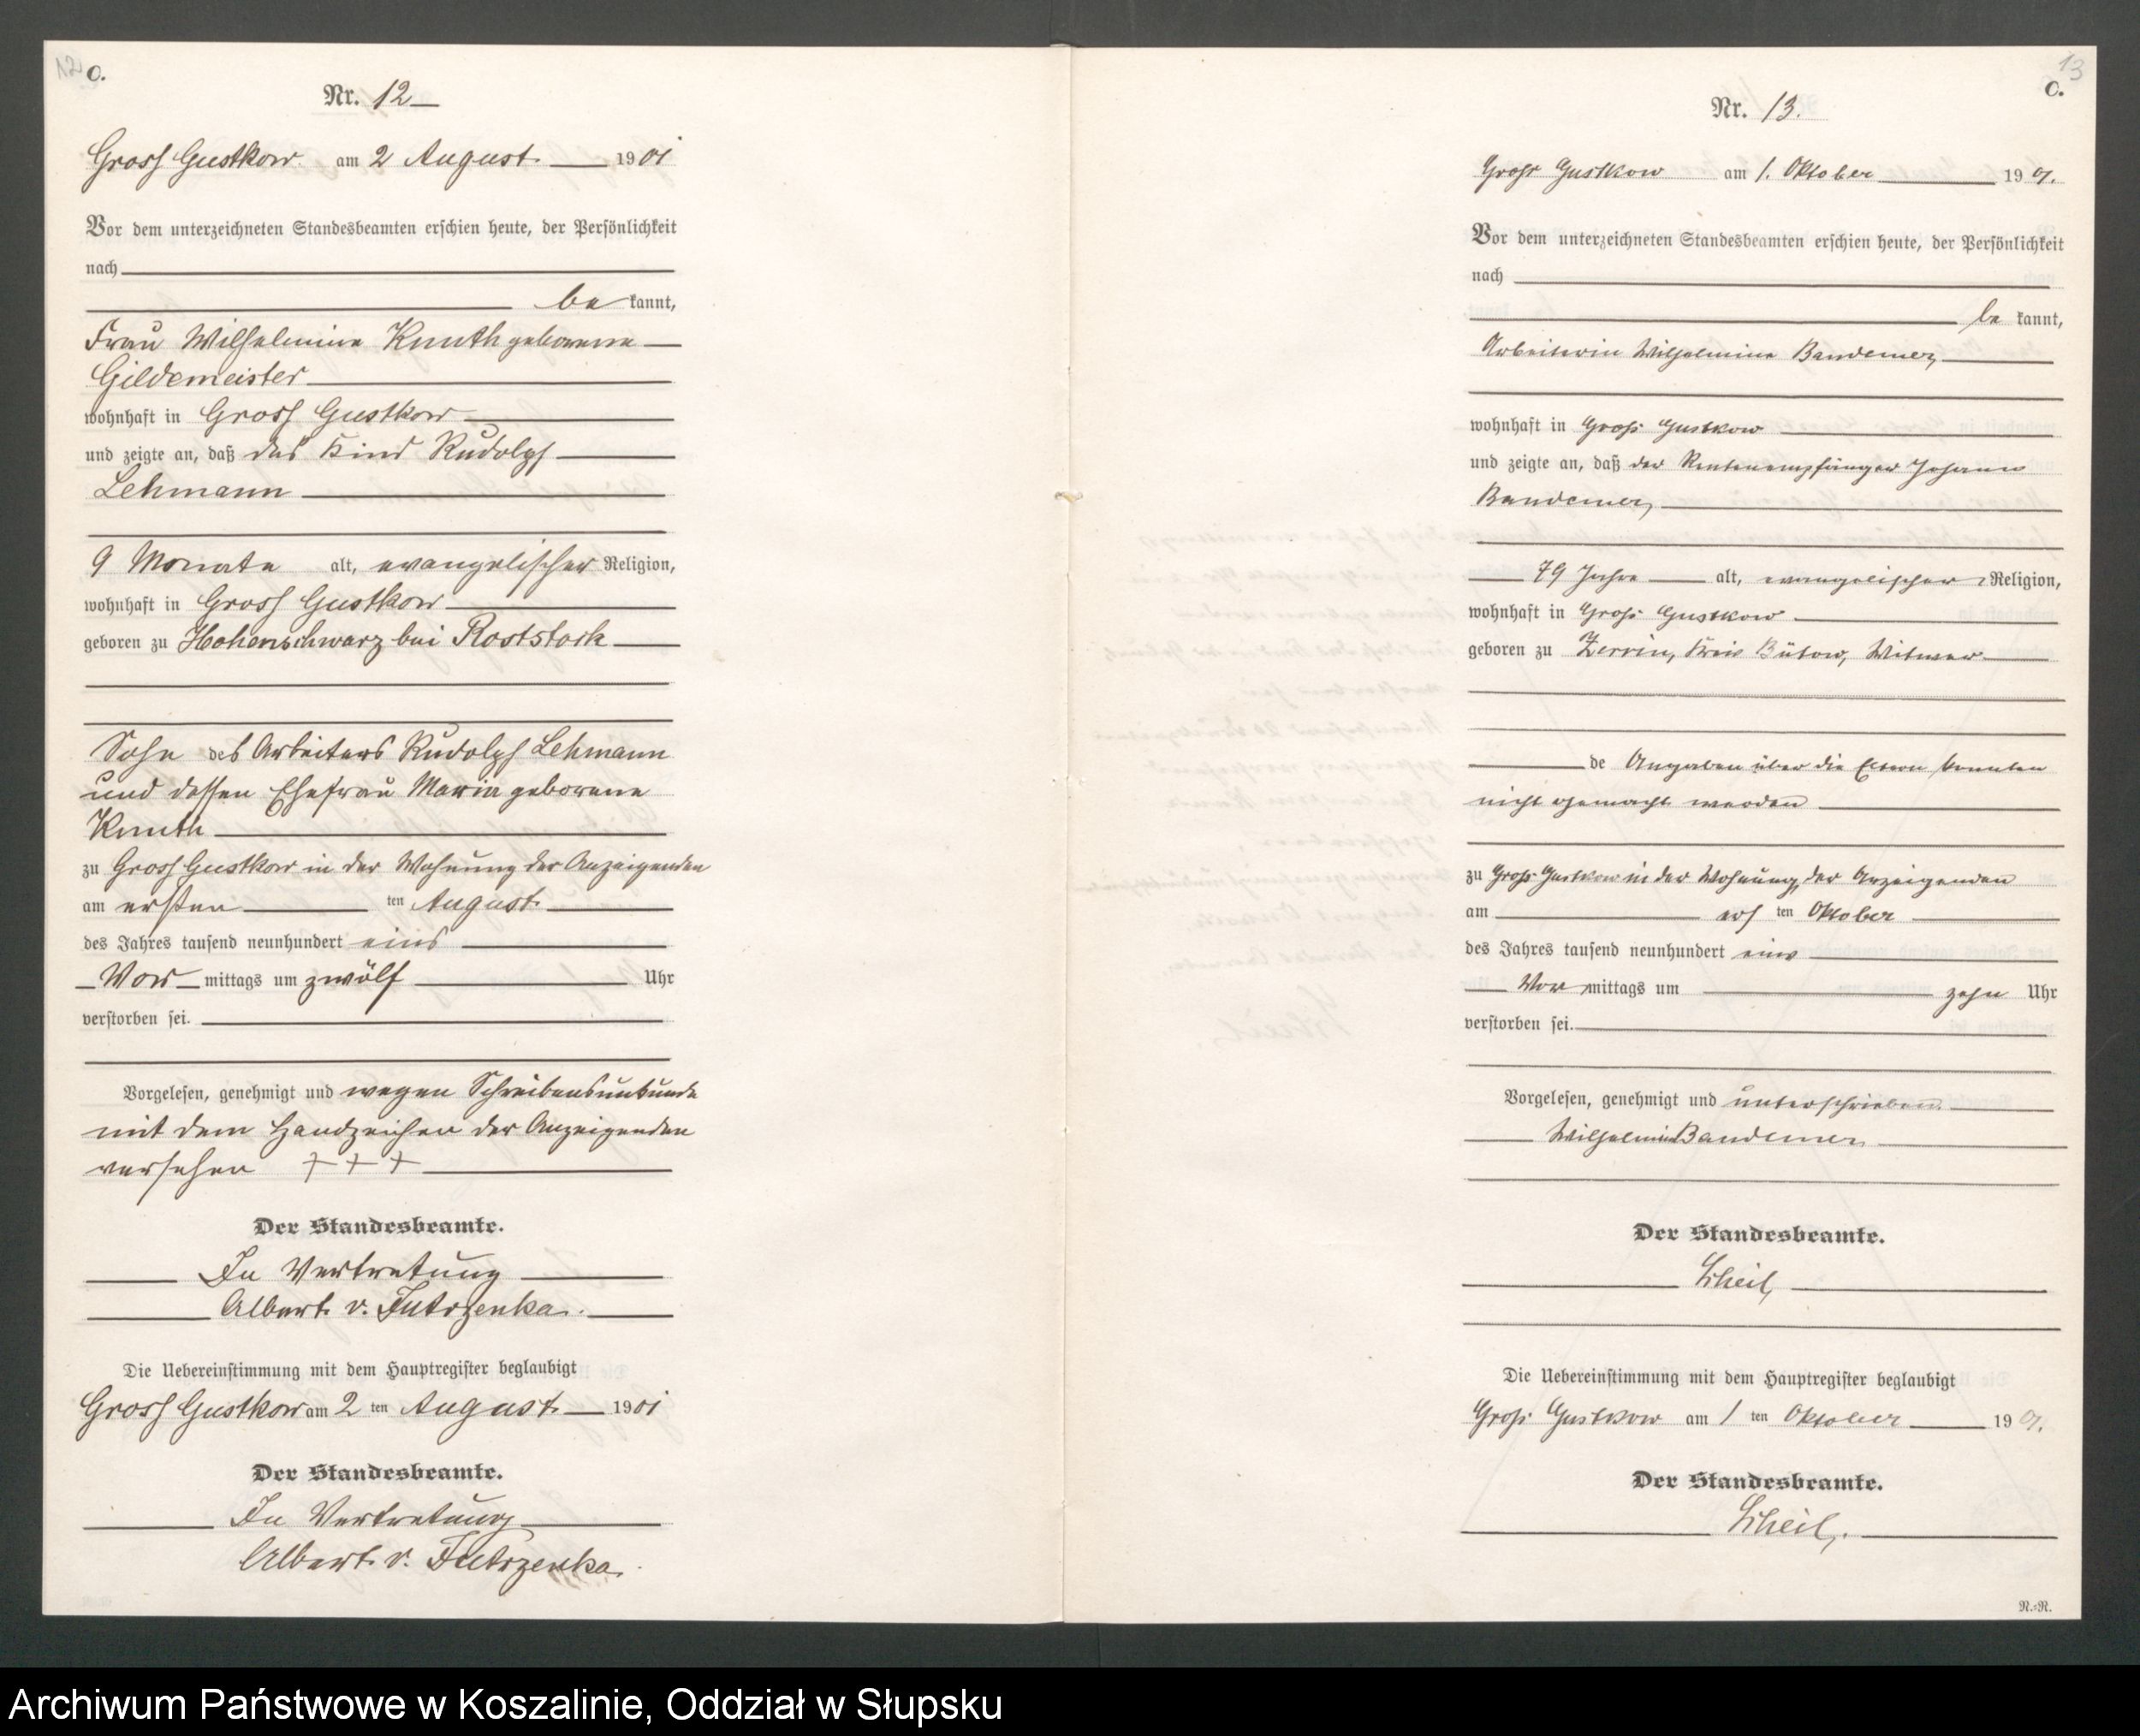 12
C.
Nr. 12
Gross Gustkow am 2 August 1901
Vor dem unterzeichneten Standesbeamten erschien heute, der Persönlichkeit
nach
be kannt,
Frau Wilhelmine Knuth geborene
Gildemeister
wohnhaft in Gross Gustkow
und zeigte an, daß das Kind Rudolph
Lehmann
9 Monate alt, evangelischer Religion,
wohnhaft in Gross Gustkow
geboren zu Hohenschwarz bei Roststock
Sohn des Arbeiters Rudolph Lehmann
und dessen Ehefrau Maria geborene
Knuth
zu Gross Gustkow in der Wohnung der Anzeigenden
am ersten ten August
des Jahres tausend neunhundert eins
Vor mittags um zwölf Uhr
verstorben sei.
Vorgelesen, genehmigt und wegen Schreibensunkunde
mit dem Handzeichen der Anzeigenden
versehen + + +
Der Standesbeamte.
In Vertretung
Albert v. Jutrzenka.
Die Uebereinstimmung mit dem Hauptregister beglaubigt
Gross Gustkow am 2 ten August 1901
Der Standesbeamte.
In Vertretung
Albert v. Jutrzenka.
13
C.
Nr. 13.
Groß Gustkow am 1. Oktober 19 01.
Vor dem unterzeichneten Standesbeamten erschien heute, der Persönlichkeit
nach
be kannt,
Arbeiterin Wilhelmine Bandemer,
wohnhaft in Groß Gustkow
und zeigte an, daß der Rentenempfänger Johann
Bandemer,
79 Jahre alt, evangelischer Religion,
wohnhaft in Groß Gustkow
geboren zu Zerrin, Kreis Bütow, Witwer
de Angaben über die Eltern konnten
nicht gemacht werden
zu Groß Gustkow in der Wohnung der Anzeigenden
am ers ten Oktober
des Jahres tausend neunhundert eins
Vor mittags um zehn Uhr
verstorben sei.
Vorgelesen, genehmigt und unterschrieben.
Wilhelmine Bandemer
Der Standesbeamte.
Scheil,
Die Uebereinstimmung mit dem Hauptregister beglaubigt
Groß Gustkow am 1 ten Oktober 19 01.
Der Standesbeamte.
Scheil,.
N.=R.
Archiwum Państwowe w Koszalinie, Oddział w Słupsku